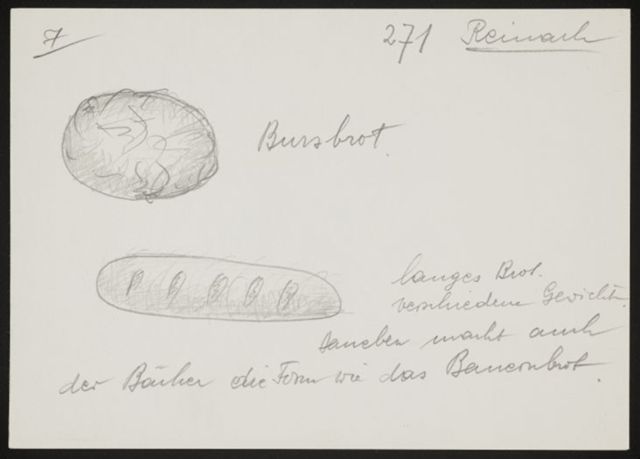 7
271 Reinach
Bursbrot.
langes Brot.
verschiedene Gewichte.
daneben macht auch
der Bäcker die Form wie das Bauernbrot.